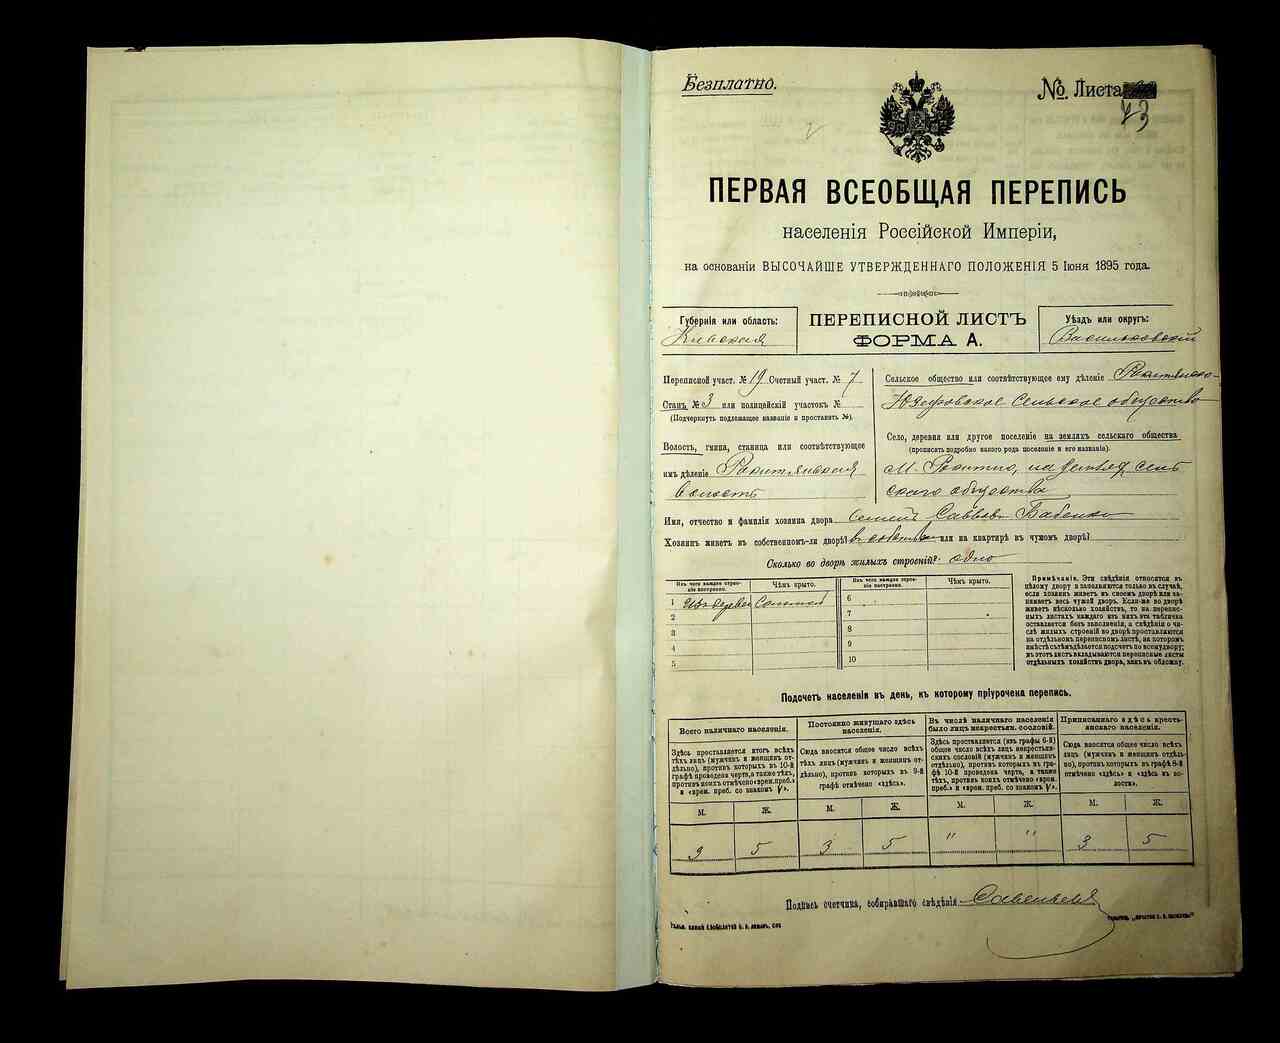 Безплатно.
№ Листа
43
ПЕРВАЯ ВСЕОБЩАЯ ПЕРЕПИСЬ
населенія Россійской Имперіи,
на основаніи ВЫСОЧАЙШЕ УТВЕРЖДЕННАГО ПОЛОЖЕНІЯ 5 Іюня 1895 года.
Губернія или область:
Кіевская
ПЕРЕПИСНОЙ ЛИСТЪ
ФОРМА А.
Уѣздъ или округъ:
Васильковскій
Переписной участ. № 19 Счетный участ. № 7
Станъ № 3 или полицейскій участокъ №
(Подчеркнуть подлежащее названіе и проставить №).
Волость, гмина, станица или соотвѣтствующее
имъ дѣленіе Ракитянская
волость
Сельское общество или соотвѣтствующее ему дѣленіе
Сельское общество
Село, деревня или другое поселеніе на земляхъ сельскаго общества
(прописать подробно какого рода поселеніе и его названіе).
М. Ракитно, на земляхъ сель
скаго общества
Имя, отчество и фамилія хозяина двора Саввовъ Бабенко
Хозяинъ живетъ въ собственномъ-ли дворѣ? или на квартирѣ въ чужомъ дворѣ?
Сколько во дворѣ жилыхъ строеній? одно
Изъ чего каждое строе-
ніе построено.
Чѣмъ крыто.
Изъ чего каждое строе-
ніе построено.
Чѣмъ крыто.
1 Изъ дерева Соломой
2
3
4
5
6
7
8
9
10
Примѣчаніе. Эти свѣдѣнія относятся къ
цѣлому двору и заполняются только въ случаѣ,
если хозяинъ живетъ въ своемъ дворѣ или за-
нимаетъ весь чужой дворъ. Если-же во дворѣ
живетъ нѣсколько хозяйствъ, то на перепис-
ныхъ листахъ каждаго изъ нихъ эта табличка
оставляется безъ заполненія, а свѣдѣнія о чи-
слѣ жилыхъ строеній во дворѣ проставляются
на отдѣльномъ переписномъ листѣ, на которомъ
вмѣстѣ съ тѣмъ дѣлается подсчетъ по всему двору;
въ этотъ листъ вкладываются переписные листы
отдѣльныхъ хозяйствъ двора, какъ въ обложку.
Подсчетъ населенія въ день, къ которому пріурочена перепись.
Всего наличнаго населенія.
Здѣсь проставляется итогъ всѣхъ
тѣхъ лицъ (мужчинъ и женщинъ от-
дѣльно), противъ которыхъ въ 10-й
графѣ проведена черта, а также тѣхъ,
противъ коихъ отмѣчено «врем. преб.»
и «врем. преб. со знакомъ V».
Постоянно живущаго здѣсь
населенія.
Сюда вносится общее число всѣхъ
тѣхъ лицъ (мужчинъ и женщинъ от-
дѣльно), противъ которыхъ въ 9-й
графѣ отмѣчено «здѣсь».
Въ числѣ наличнаго населенія
было лицъ некрестьян. сословій.
Здѣсь проставляется (изъ графы 6-й)
общее число всѣхъ лицъ некрестьян-
скихъ сословій (мужчинъ и женщинъ
отдѣльно), противъ которыхъ въ гра-
фѣ 10-й проведена черта, а также
тѣхъ, противъ коихъ отмѣчено «врем.
преб.» и «врем. преб. со знакомъ V».
Приписаннаго здѣсь кресть-
янскаго населенія.
Сюда вносится общее число всѣхъ
лицъ (мужчинъ и женщинъ отдѣль-
но), противъ которыхъ въ графѣ 8-й
отмѣчено «здѣсь» и «здѣсь въ во-
лости».
М. Ж. М. Ж. М. Ж. М. Ж.
3 5 3 5 " " 3 5
Подпись счетчика, собиравшаго свѣдѣнія